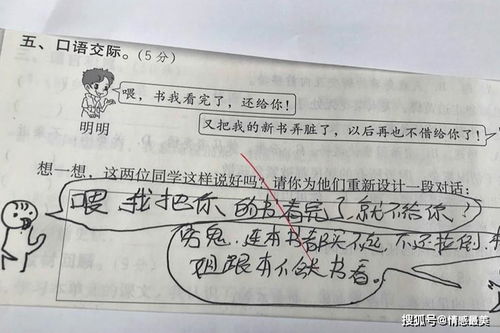 五、口语交际。(5分)
喂，书我看完了，还给你！
明明
又把我的新书弄脏了，以后再也不借给你了！
想一想，这两位同学这样说好吗？请你为他们重新设计一段对话：
喂 我把你的书看完了就不给你？
穷鬼，连本书都买不起，不还拉倒，本
姐跟本不会书看。
搜狐号@情感最美